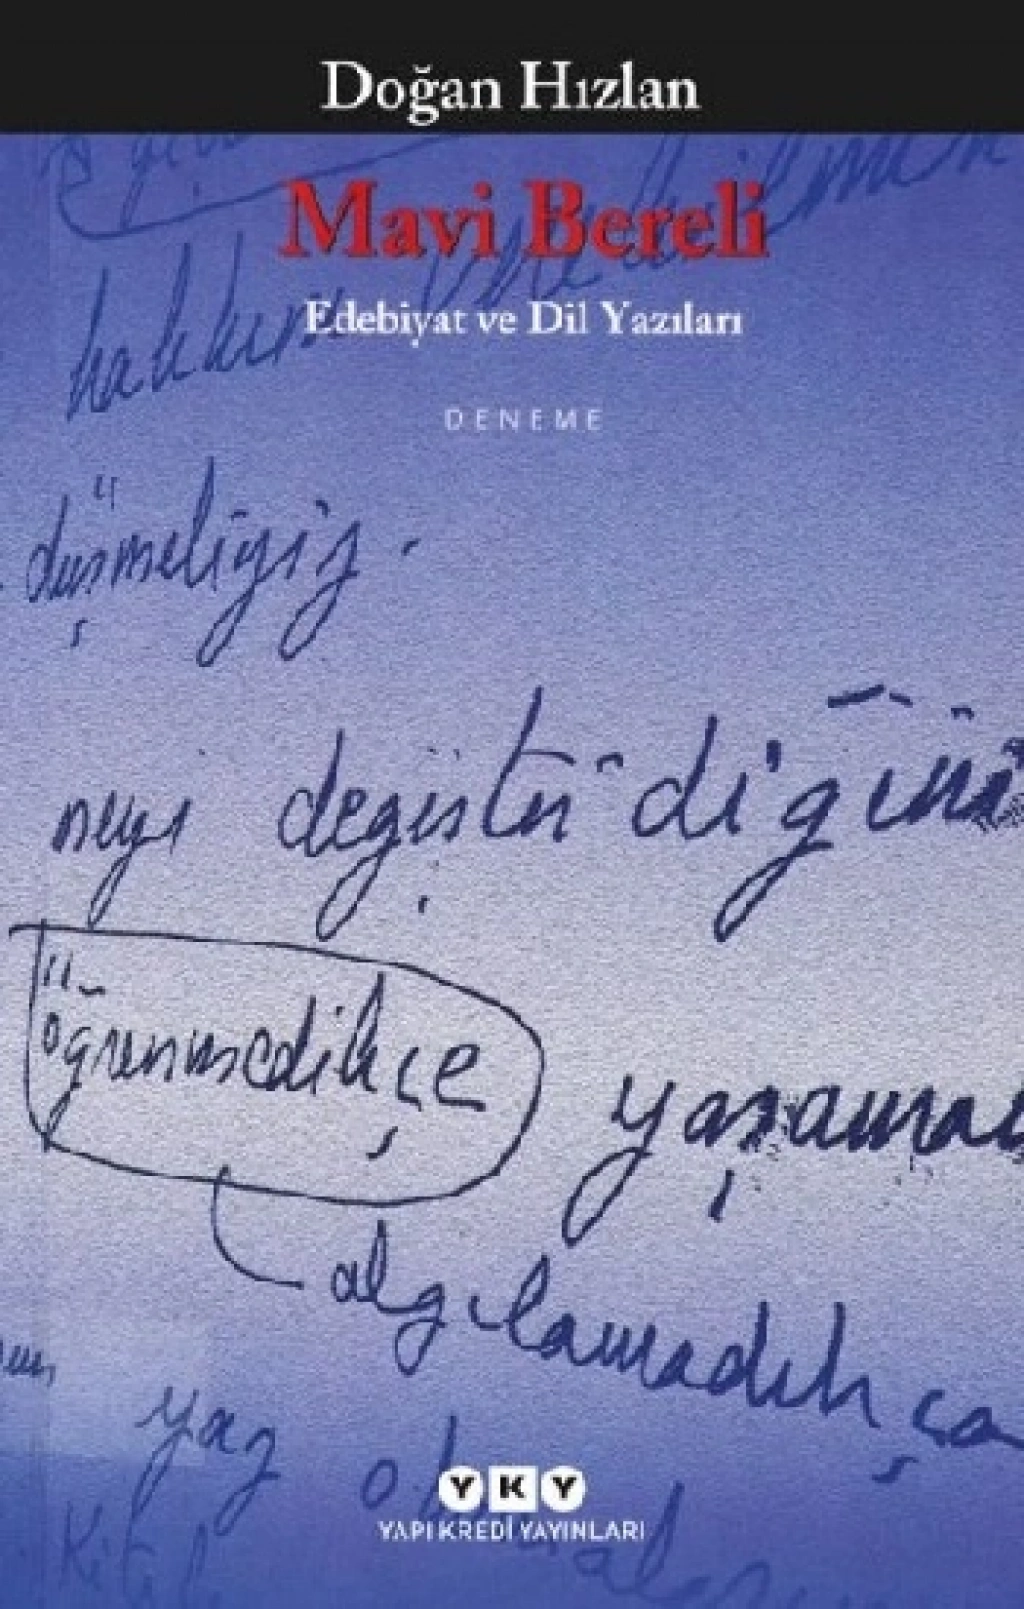 Doğan Hızlan
Mavi Bereli
hakkını
Edebiyat ve Dil Yazıları
DENEME
düşmeliyiz.
neyi değiştirdiğini
öğrenmedikçe
algılamadıkça
yaz
YKY
YAPI KREDİ YAYINLARI